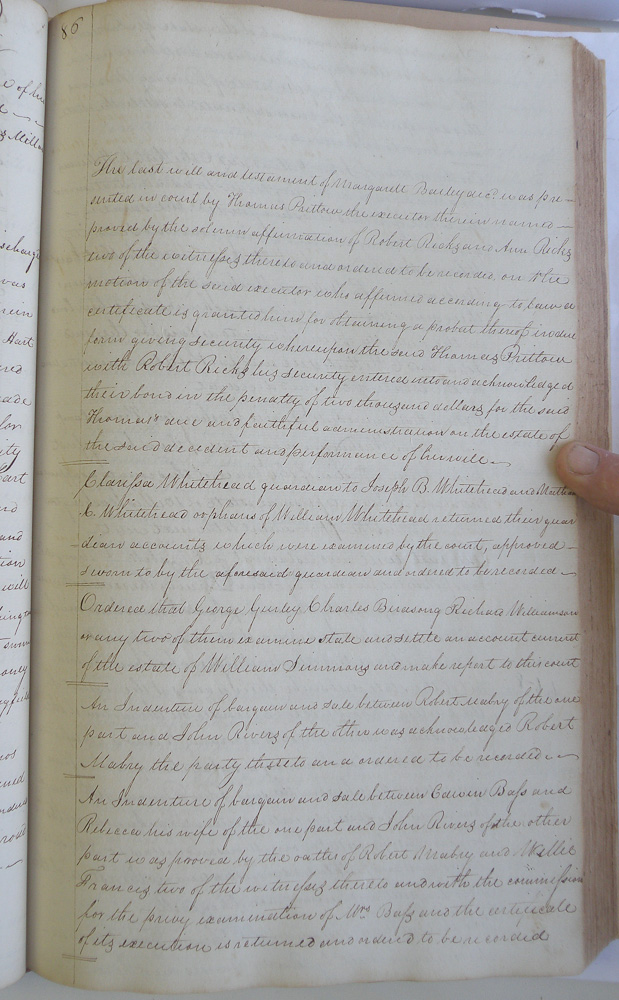 86
The last will and testament of Margarett Bailey decd. was pre-
sented in court by Thomas Pretlow the executor therein named
proved by the solemn affirmation of Robert Ricks and Ann Ricks
two of the witnesses thereto and ordered to be recorded, on the
motion of the said executor who affirmed according to law a
certificate is granted him for obtaining a probat thereof in due
form giving security whereupon the said Thomas Pretlow
with Robert Ricks his security entered into and acknowledged
their bond in the penalty of two thousand dollars for the said
Thomas's due and faithful administration on the estate of
the said decedent and performance of her will
Clarissa Whitehead guardian to Joseph B. Whitehead and
C. Whitehead orphans of William Whitehead returned their guar
dian accounts which were examined by the court, approved
sworn to by the aforesaid guardian and ordered to be recorded
Ordered that George Gurley Charles Birdsong Richard Williamson
or any two of them examine state and settle an account current
of the estate of William Simmons and make report to this court
An Indenture of bargain and sale between Robert Mabry of the one
part and John Rivers of the other was acknowledged Robert
Mabry the party thereto and ordered to be recorded
An Indenture of bargain and sale between Edwin Bass and
Rebecca his wife of the one part and John Rivers of the other
part was proved by the oaths of Robert Mabry and Willie
Francis two of the witnesses thereto and with the commission
for the privy examination of Mrs Bass and the certificate
of its execution is returned and ordered to be recorded